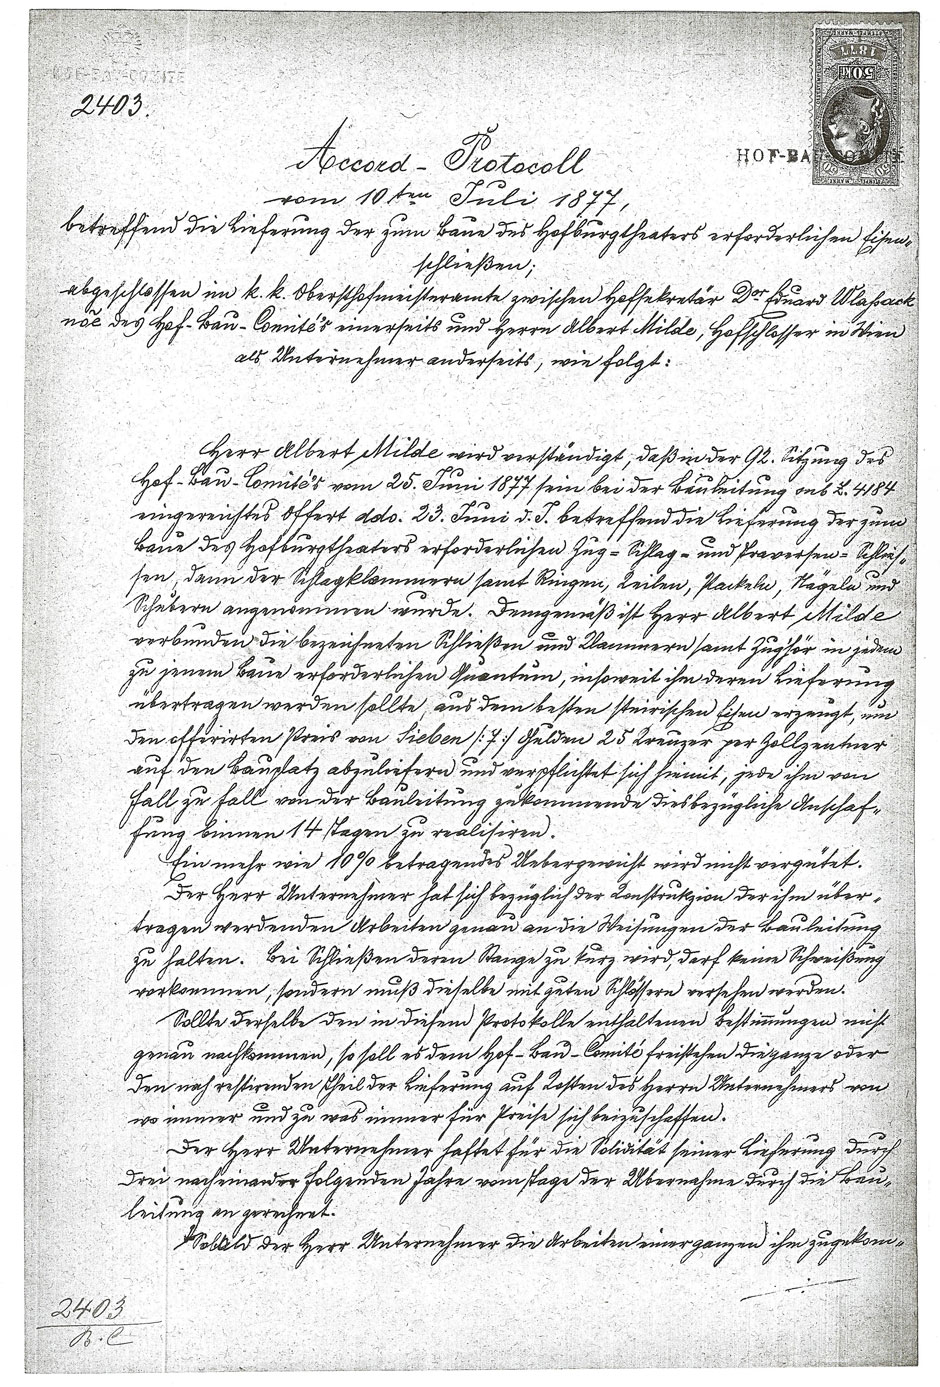 HOF-BAU-COMITÉ
2403.
1877
50 KR
HOF-BAU-COMITÉ
Accord-Protocoll
vom 10ten Juli 1877,
betreffend die Lieferung der zum Baue des Hofburgtheaters erforderlichen Eisen-
schließen;
abgeschlossen im k. k. Obersthofmeisteramte zwischen Hofsekretär Dor Eduard Wlassack
nõe des Hof-Bau-Comité's einerseits und Herrn Albert Milde, Hofschlosser in Wien
als Unternehmer anderseits, wie folgt:
Herr Albert Milde wird verständigt, daß in der 92. Sitzung des
Hof-Bau-Comité's vom 25. Juni 1877 sein bei der Bauleitung sub Z. 4184
eingereichtes Offert ddo. 23. Juni d. J. betreffend die Lieferung der zum
Baue des Hofburgtheaters erforderlichen Zug- Schlag- und Traversen- Schlies-
sen, dann der Schlagklammern samt Ringen, Keilen, Packeln, Nägeln und
Schubern angenommen wurde. Demgemäß ist Herr Albert Milde
verbunden die bezeichneten Schließen und Klammern samt Zughör in jedem
zu jenem Baue erforderlichen Quantum, insoweit ihm deren Lieferung
übertragen werden sollte, aus dem besten steirischen Eisen erzeugt, um
den offerirten Preis von Sieben /:7:/ Gulden 25 Kreuzer per Zollzentner
auf den Bauplatz abzuliefern und verpflichtet sich hiemit, jede ihm von
Fall zu Fall von der Bauleitung zukommende diesbezügliche Anschaf-
fung binnen 14 Tagen zu realisiren.
Ein mehr wie 10% betragendes Uebergewicht wird nicht vergütet.
Der Herr Unternehmer hat sich bezüglich der Konstrukzion der ihm über-
tragen werdenden Arbeiten genau an die Weisungen der Bauleitung
zu halten. Bei Schließen deren Stange zu kurz wird, darf keine Schweißung
vorkommen, sondern muß dieselbe mit guten Schlössern versehen werden.
Sollte derselbe den in diesem Protokolle enthaltenen Bestimmungen nicht
genau nachkommen, so soll es dem Hof-Bau-Comité freistehen die ganze oder
den noch restirenden Theil der Lieferung auf Kosten des Herrn Unternehmers von
wo immer und zu was immer für Preise sich beizuschaffen.
Der Herr Unternehmer haftet für die Solidität seiner Lieferung durch
drei nacheinander folgenden Jahre vom Tage der Übernahme durch die Bau-
leitung an gerechnet.
Sobald der Herr Unternehmer die Arbeiten einer ganzen ihm zugekom-
2403
B. C